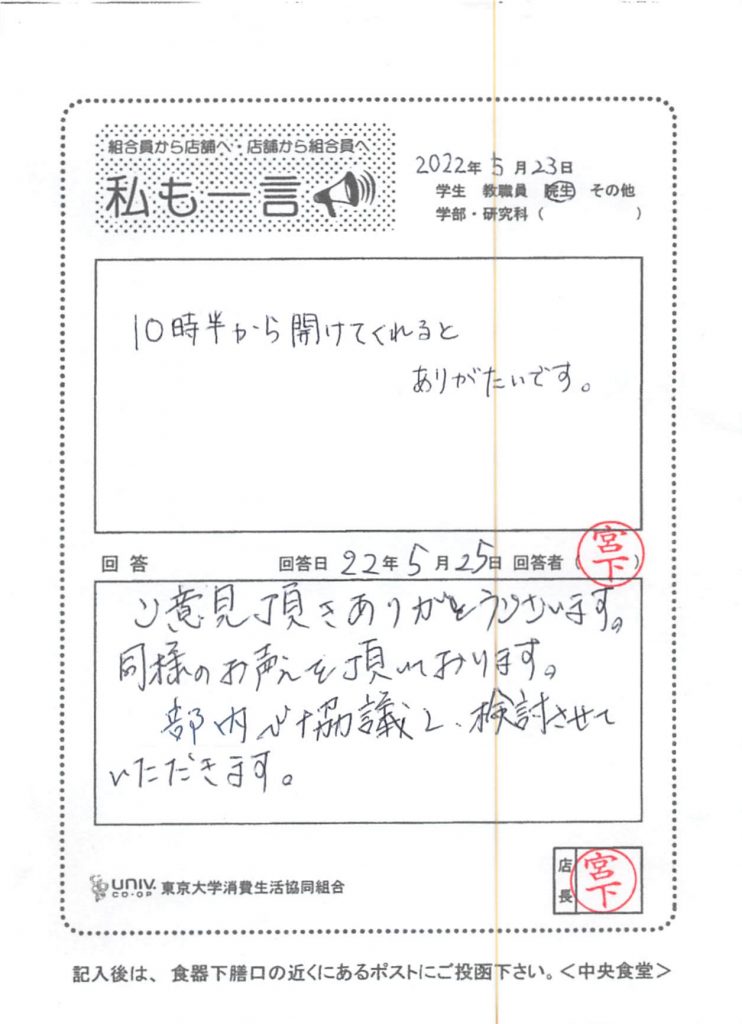 組合員から店舗へ・店舗から組合員へ
私も一言
2022年 5月23日
学生 教職員 院生 その他
学部・研究科( )
10時半から開けてくれると
ありがたいです。
回答 回答日 22年 5月 25日 回答者(宮下)
ご意見頂きありがとうございます。
同様のお声を頂いております。
部内で協議し、検討させて
いただきます。
UNIV. CO-OP 東京大学消費生活協同組合
店長 宮下
記入後は、食器下膳口の近くにあるポストにご投函下さい。<中央食堂>